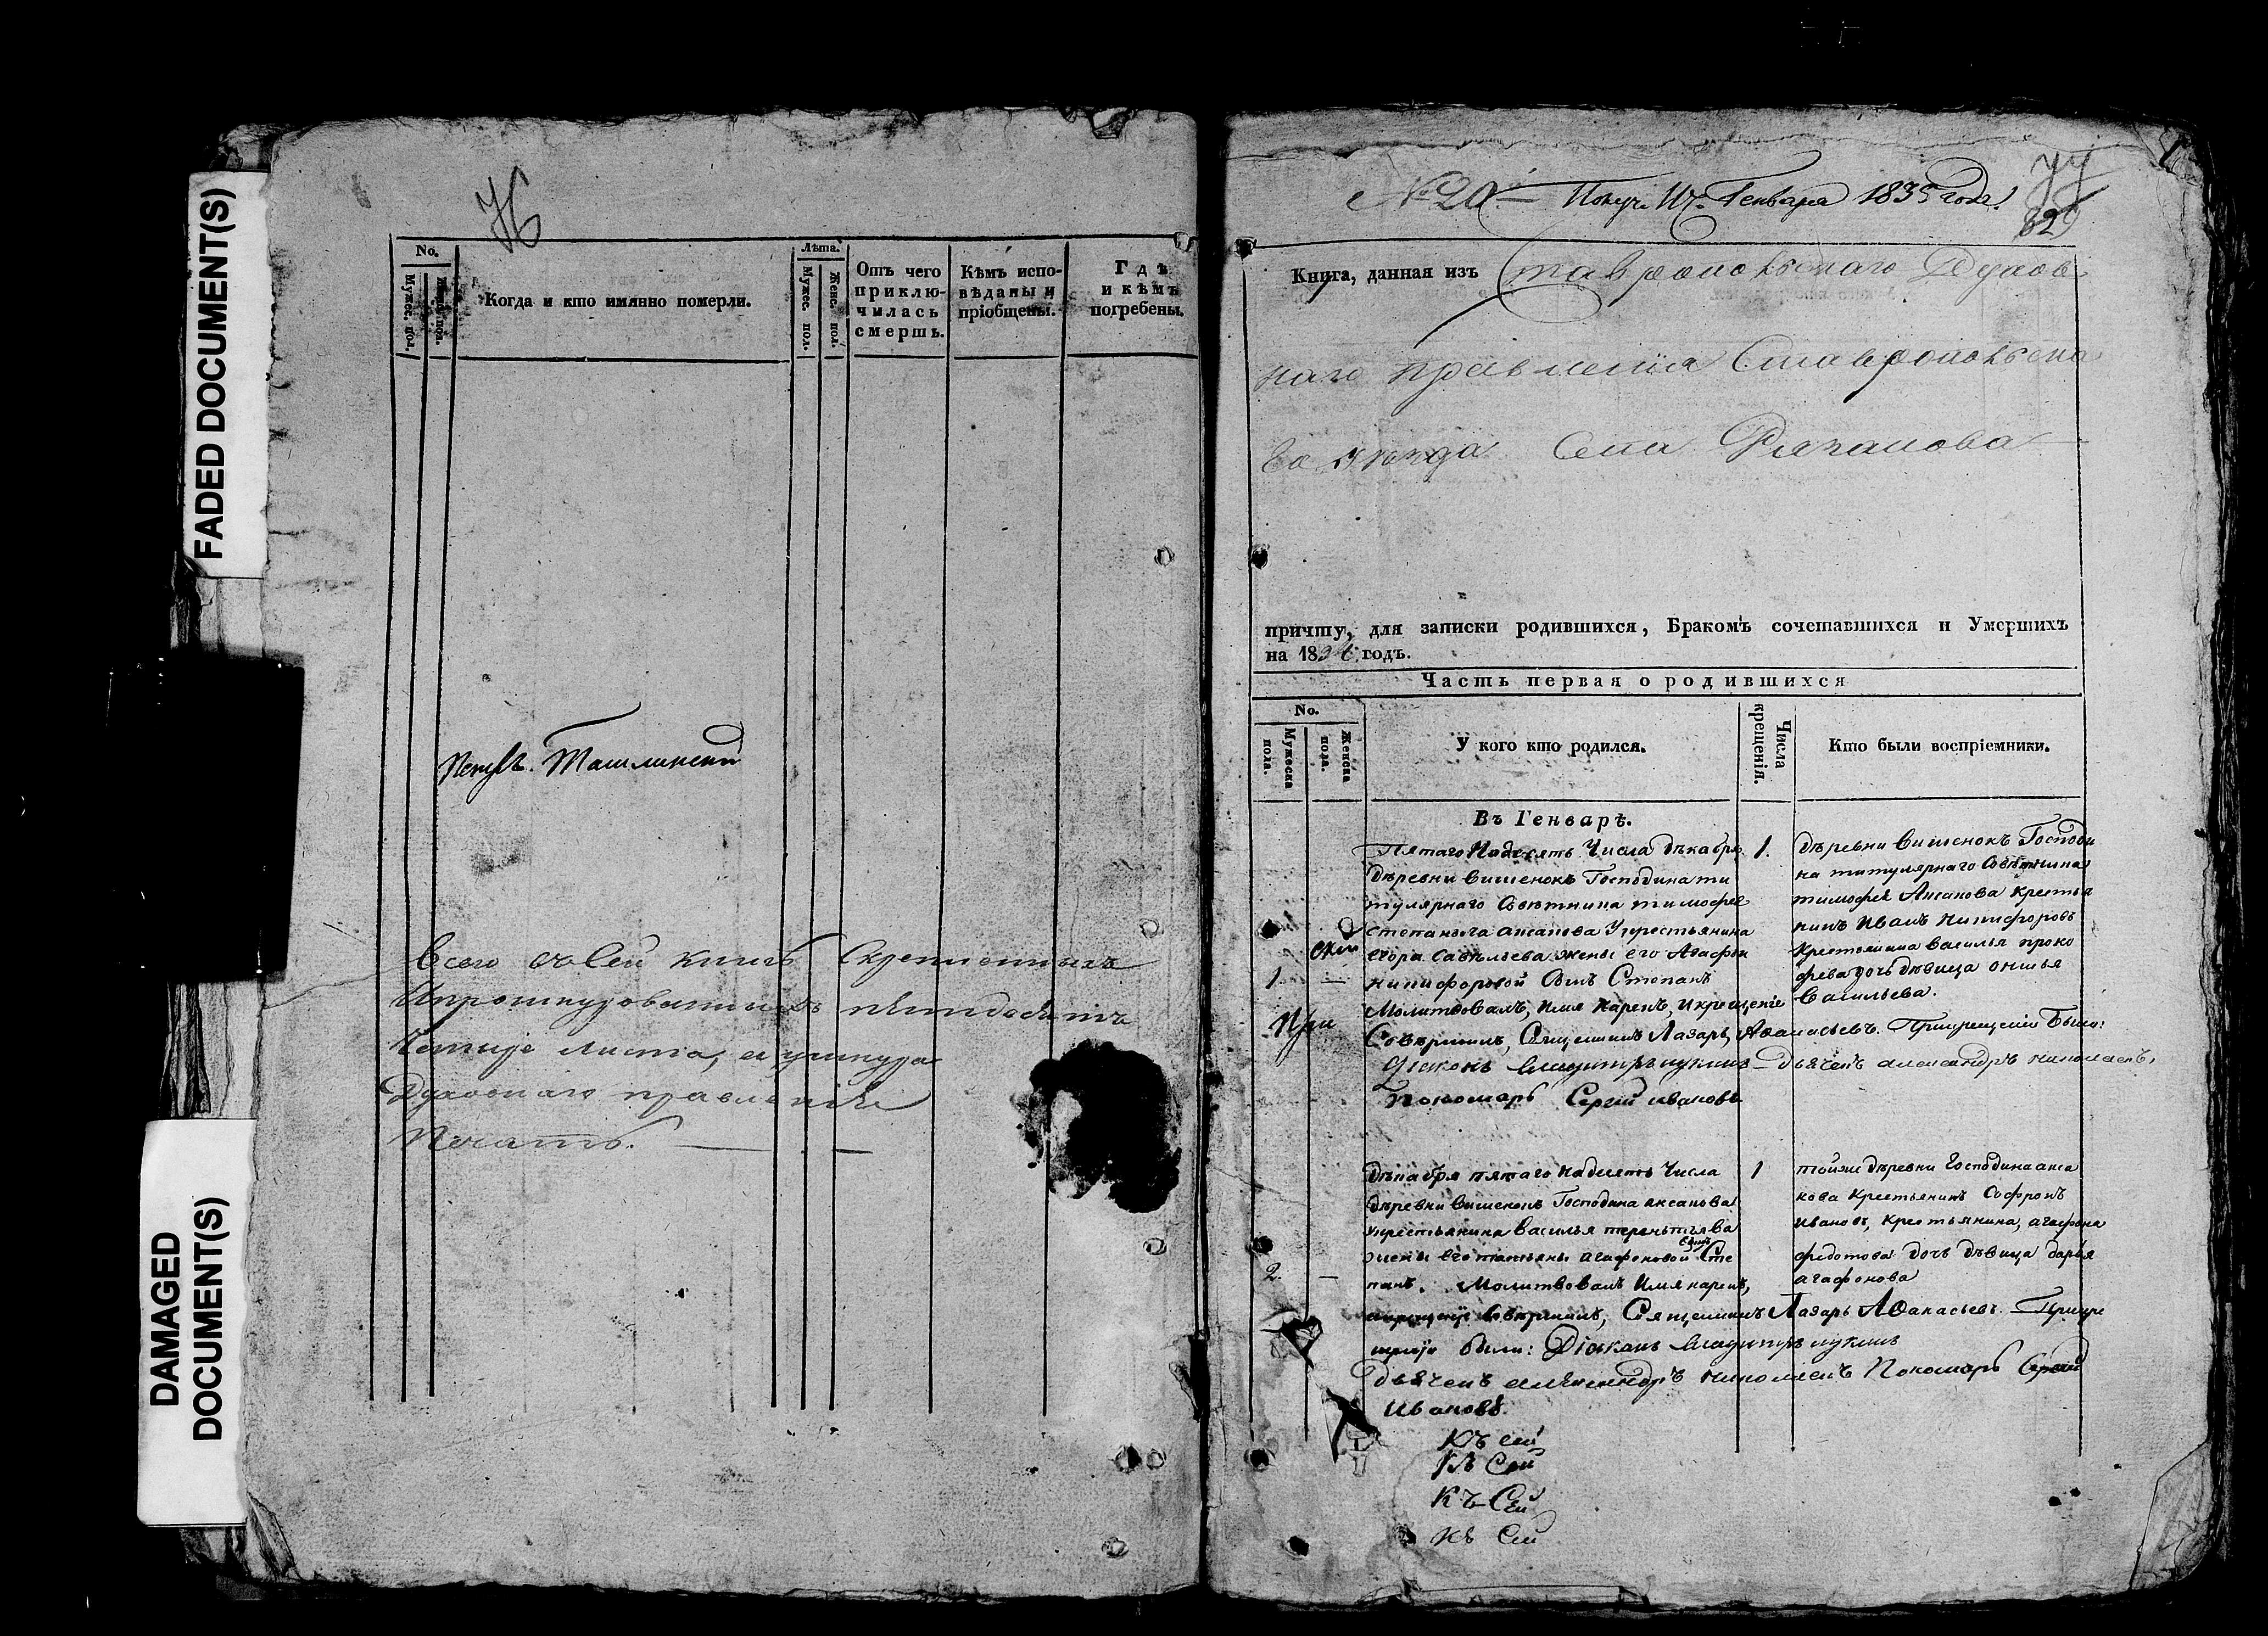 FADED DOCUMENT(S)
DAMAGED
DOCUMENT(S)
76
No.
Мужес. пол.
Когда и кто имянно померли.
Лѣта.
Мужес. пол.
Женс. пол.
Отъ чего
приклю-
чилась
смерть.
Кѣмъ испо-
вѣданы и
пріобщены.
Гдѣ
и кѣмъ
погребены.
Ташлинский
Всего в сей книгѣ скрепленныхъ
и прошнурованныхъ пятьдесятъ
четыре листа, у шнура
Духовнаго правления
Печать.
77
1
№ 20. Получ. Генваря 1835 года.
829
Книга, данная изъ Ставропольскаго Духов
наго правления Ставропольска
го уѣзда Села Рязанова
причту, для записки родившихся, Бракомъ сочетавшихся и Умершихъ
на 1834 годъ.
Часть первая о родившихся
No.
Мужеска
пола.
Женска
пола.
У кого кто родился.
Числа
крещенія.
Кто были воспріемники.
Въ Генварѣ.
Пятаго Надесять Числа декабря
деревни вишенокъ Господина ти
тулярнаго Советника тимофея
степаныча аксакова у крестьянина
егора савельева жены его Агафьи
никифоровой Сынъ Степанъ
Молитвовалъ, Имя нарекъ, и крещение
Совершилъ, Священникъ Лазарь Афанасьевъ. При крещении были:
Діаконъ Дьячекъ александръ николаевъ,
Пономарь Сергей ивановъ
1
1.
деревни вишенокъ Господи
на титулярнаго Советника
тимофея Аксакова крестья
нинъ иванъ никифоровъ
крестьянина василья проко
фьева дочь девица
васильева.
декабря пятаго надесять Числа
деревни вишенокъ Господина аксакова
у крестьянина василья терентьева
жены его татьяны агафоновой сынъ Сте
панъ. Молитвовалъ Имя нарекъ,
и крещение совершилъ, Священникъ Лазарь Афанасьевъ. При кре
щении были: Діаконъ
дьячекъ александръ николаевъ Пономарь Сергей
Ивановъ.
2.
1
тойже деревни Господина акса
кова крестьянинъ Софронъ
ивановъ, крестьянина, агафона
федотова дочь девица дарья
агафонова
Къ сей
Къ Сей
Къ Сей
Къ Сей